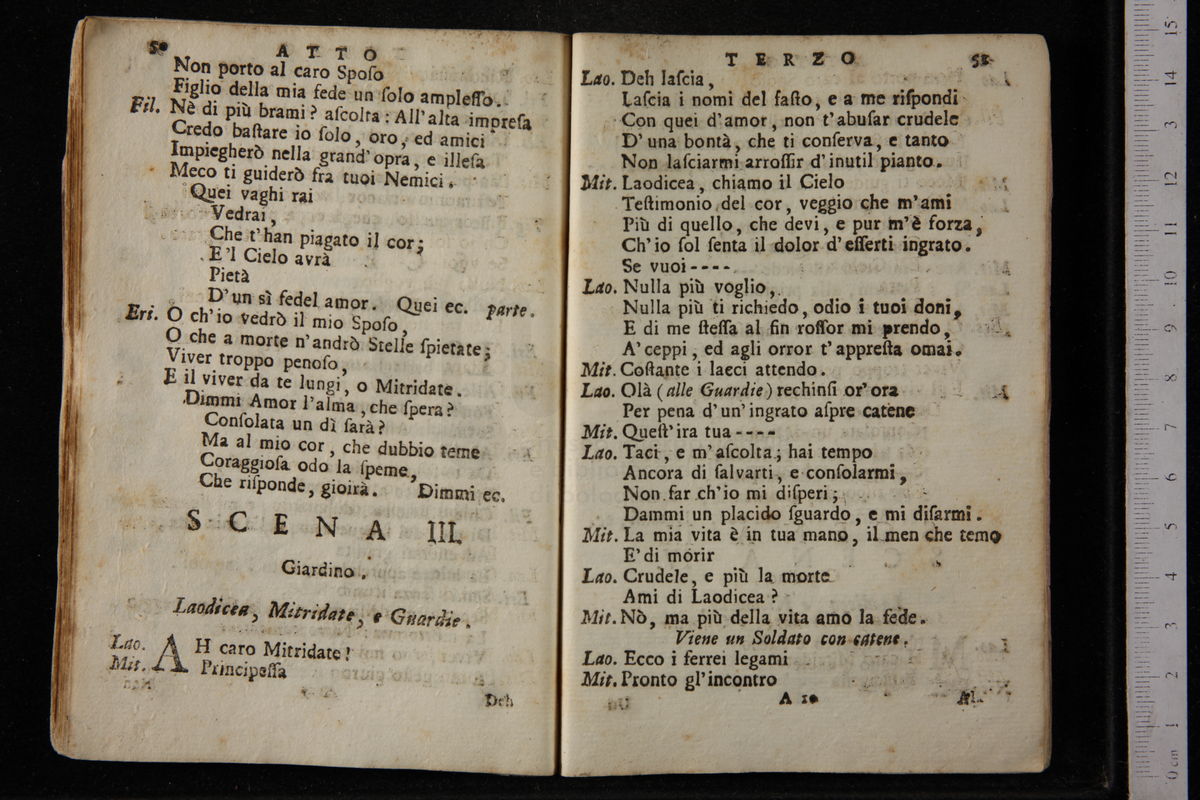 50
ATTO
Non porto al caro Spoſo
Figlio della mia fede un ſolo ampleſſo.
Fil. Nè di più brami? aſcolta: All'alta impreſa
Credo baſtare io ſolo, oro, ed amici
Impiegherò nella grand'opra, e illeſa
Meco ti guiderò fra tuoi Nemici.
Quei vaghi rai
Vedrai,
Che t'han piagato il cor;
E'l Cielo avrà
Pietà
D'un sì fedel amor. Quei ec. parte.
Eri. O ch'io vedrò il mio Spoſo,
O che a morte n'andrò Stelle ſpietate;
Viver troppo penoſo,
E il viver da te lungi, o Mitridate.
Dimmi Amor l'alma, che ſpera?
Conſolata un dì ſarà?
Ma al mio cor, che dubbio teme
Coraggioſa odo la ſpeme,
Che riſponde, gioirà. Dimmi ec.
SCENA III.
Giardino.
Laodicea, Mitridate, e Guardie.
Lao. AH caro Mitridate!
Mit. Principeſſa
Deh
TERZO
51
Lao. Deh laſcia,
Laſcia i nomi del faſto, e a me riſpondi
Con quei d'amor, non t'abuſar crudele
D'una bontà, che ti conſerva, e tanto
Non laſciarmi arroſſir d'inutil pianto.
Mit. Laodicea, chiamo il Cielo
Teſtimonio del cor, veggio che m'ami
Più di quello, che devi, e pur m'è forza,
Ch'io ſol ſenta il dolor d'eſſerti ingrato.
Se vuoi----
Lao. Nulla più voglio,
Nulla più ti richiedo, odio i tuoi doni,
E di me ſteſſa al fin roſſor mi prendo,
A' ceppi, ed agli orror t'appreſta omai.
Mit. Coſtante i lacci attendo.
Lao. Olà (alle Guardie) rechinſi or'ora
Per pena d'un'ingrato aſpre catene
Mit. Queſt'ira tua----
Lao. Taci, e m'aſcolta; hai tempo
Ancora di ſalvarti, e conſolarmi,
Non far ch'io mi diſperi;
Dammi un placido ſguardo, e mi diſarmi.
Mit. La mia vita è in tua mano, il men che temo
E' di morir
Lao. Crudele, e più la morte
Ami di Laodicea?
Mit. Nò, ma più della vita amo la fede.
Viene un Soldato con catene.
Lao. Ecco i ferrei legami
Mit. Pronto gl'incontro
A 10